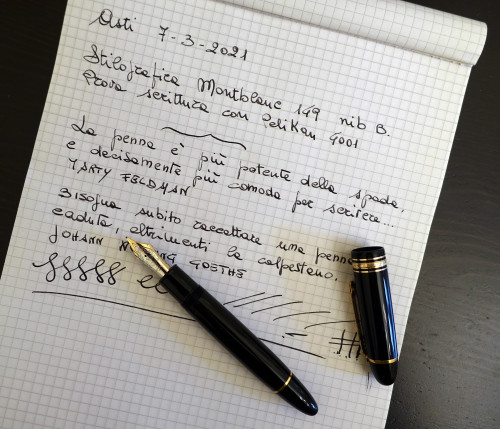 Asti 7-3-2021
Stilografica Montblanc 149 nib B.
Prova scrittura con Pelikan 4001
La penna è più potente della spada,
e decisamente più comoda per scrivere...
MARTY FELDMAN
Bisogna subito raccattare una penna
caduta, altrimenti la calpestano.
JOHANN GOETHE